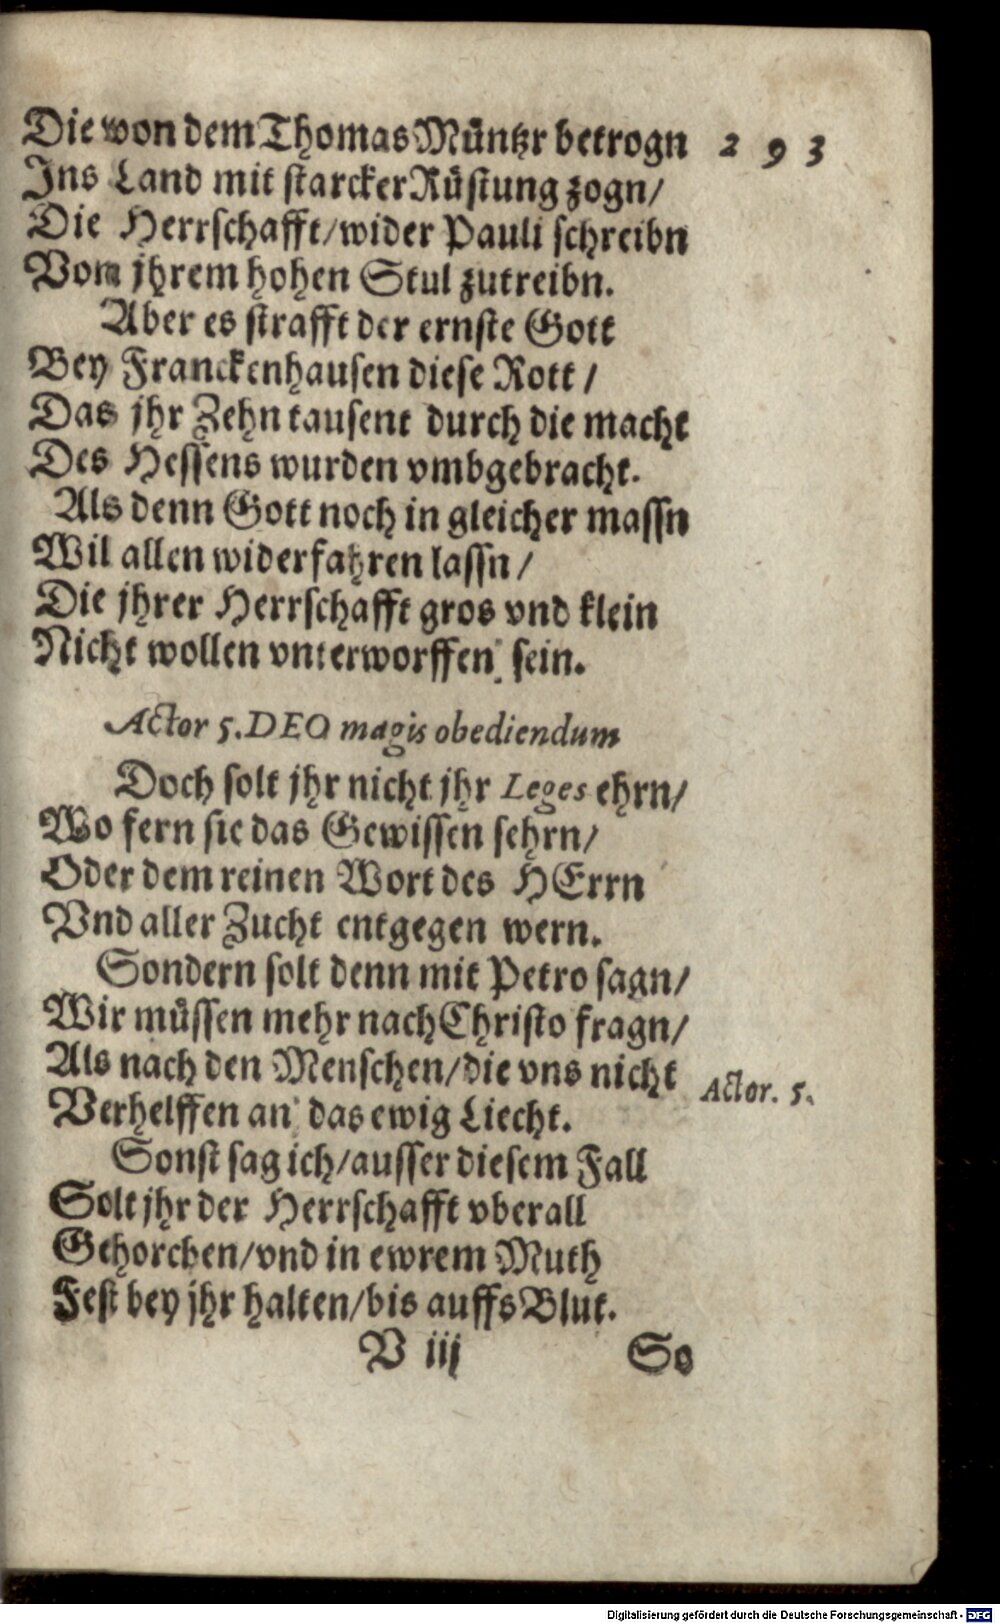 Die von dem Thomas Müntzr betrogn 293
Ins Land mit starcker Rüstung zogn/
Die Herrschafft/wider Pauli schreibn
Vom jhrem hohen Stul zutreibn.
Aber es strafft der ernste Gott
Bey Franckenhausen diese Rott/
Das jhr Zehn tausent durch die macht
Des Hessens wurden vmbgebracht.
Als denn Gott noch in gleicher massn
Wil allen widerfahren lassn/
Die jhrer Herrschafft gros vnd klein
Nicht wollen vnterworffen sein.
Actor 5. DEO magis obediendum
Doch solt jhr nicht jhr Leges ehrn/
Wo fern sie das Gewissen sehrn/
Oder dem reinen Wort des HErrn
Vnd aller Zucht entgegen wern.
Sondern solt denn mit Petro sagn/
Wir müssen mehr nach Christo fragn/
Als nach den Menschen/die vns nicht
Actor. 5.
Verhelffen an das ewig Liecht.
Sonst sag ich/ausser diesem Fall
Solt jhr der Herrschafft vberall
Gehorchen/vnd in ewrem Muth
Fest bey jhr halten/bis auffs Blut.
V iij So
Digitalisierung gefördert durch die Deutsche Forschungsgemeinschaft - DFG